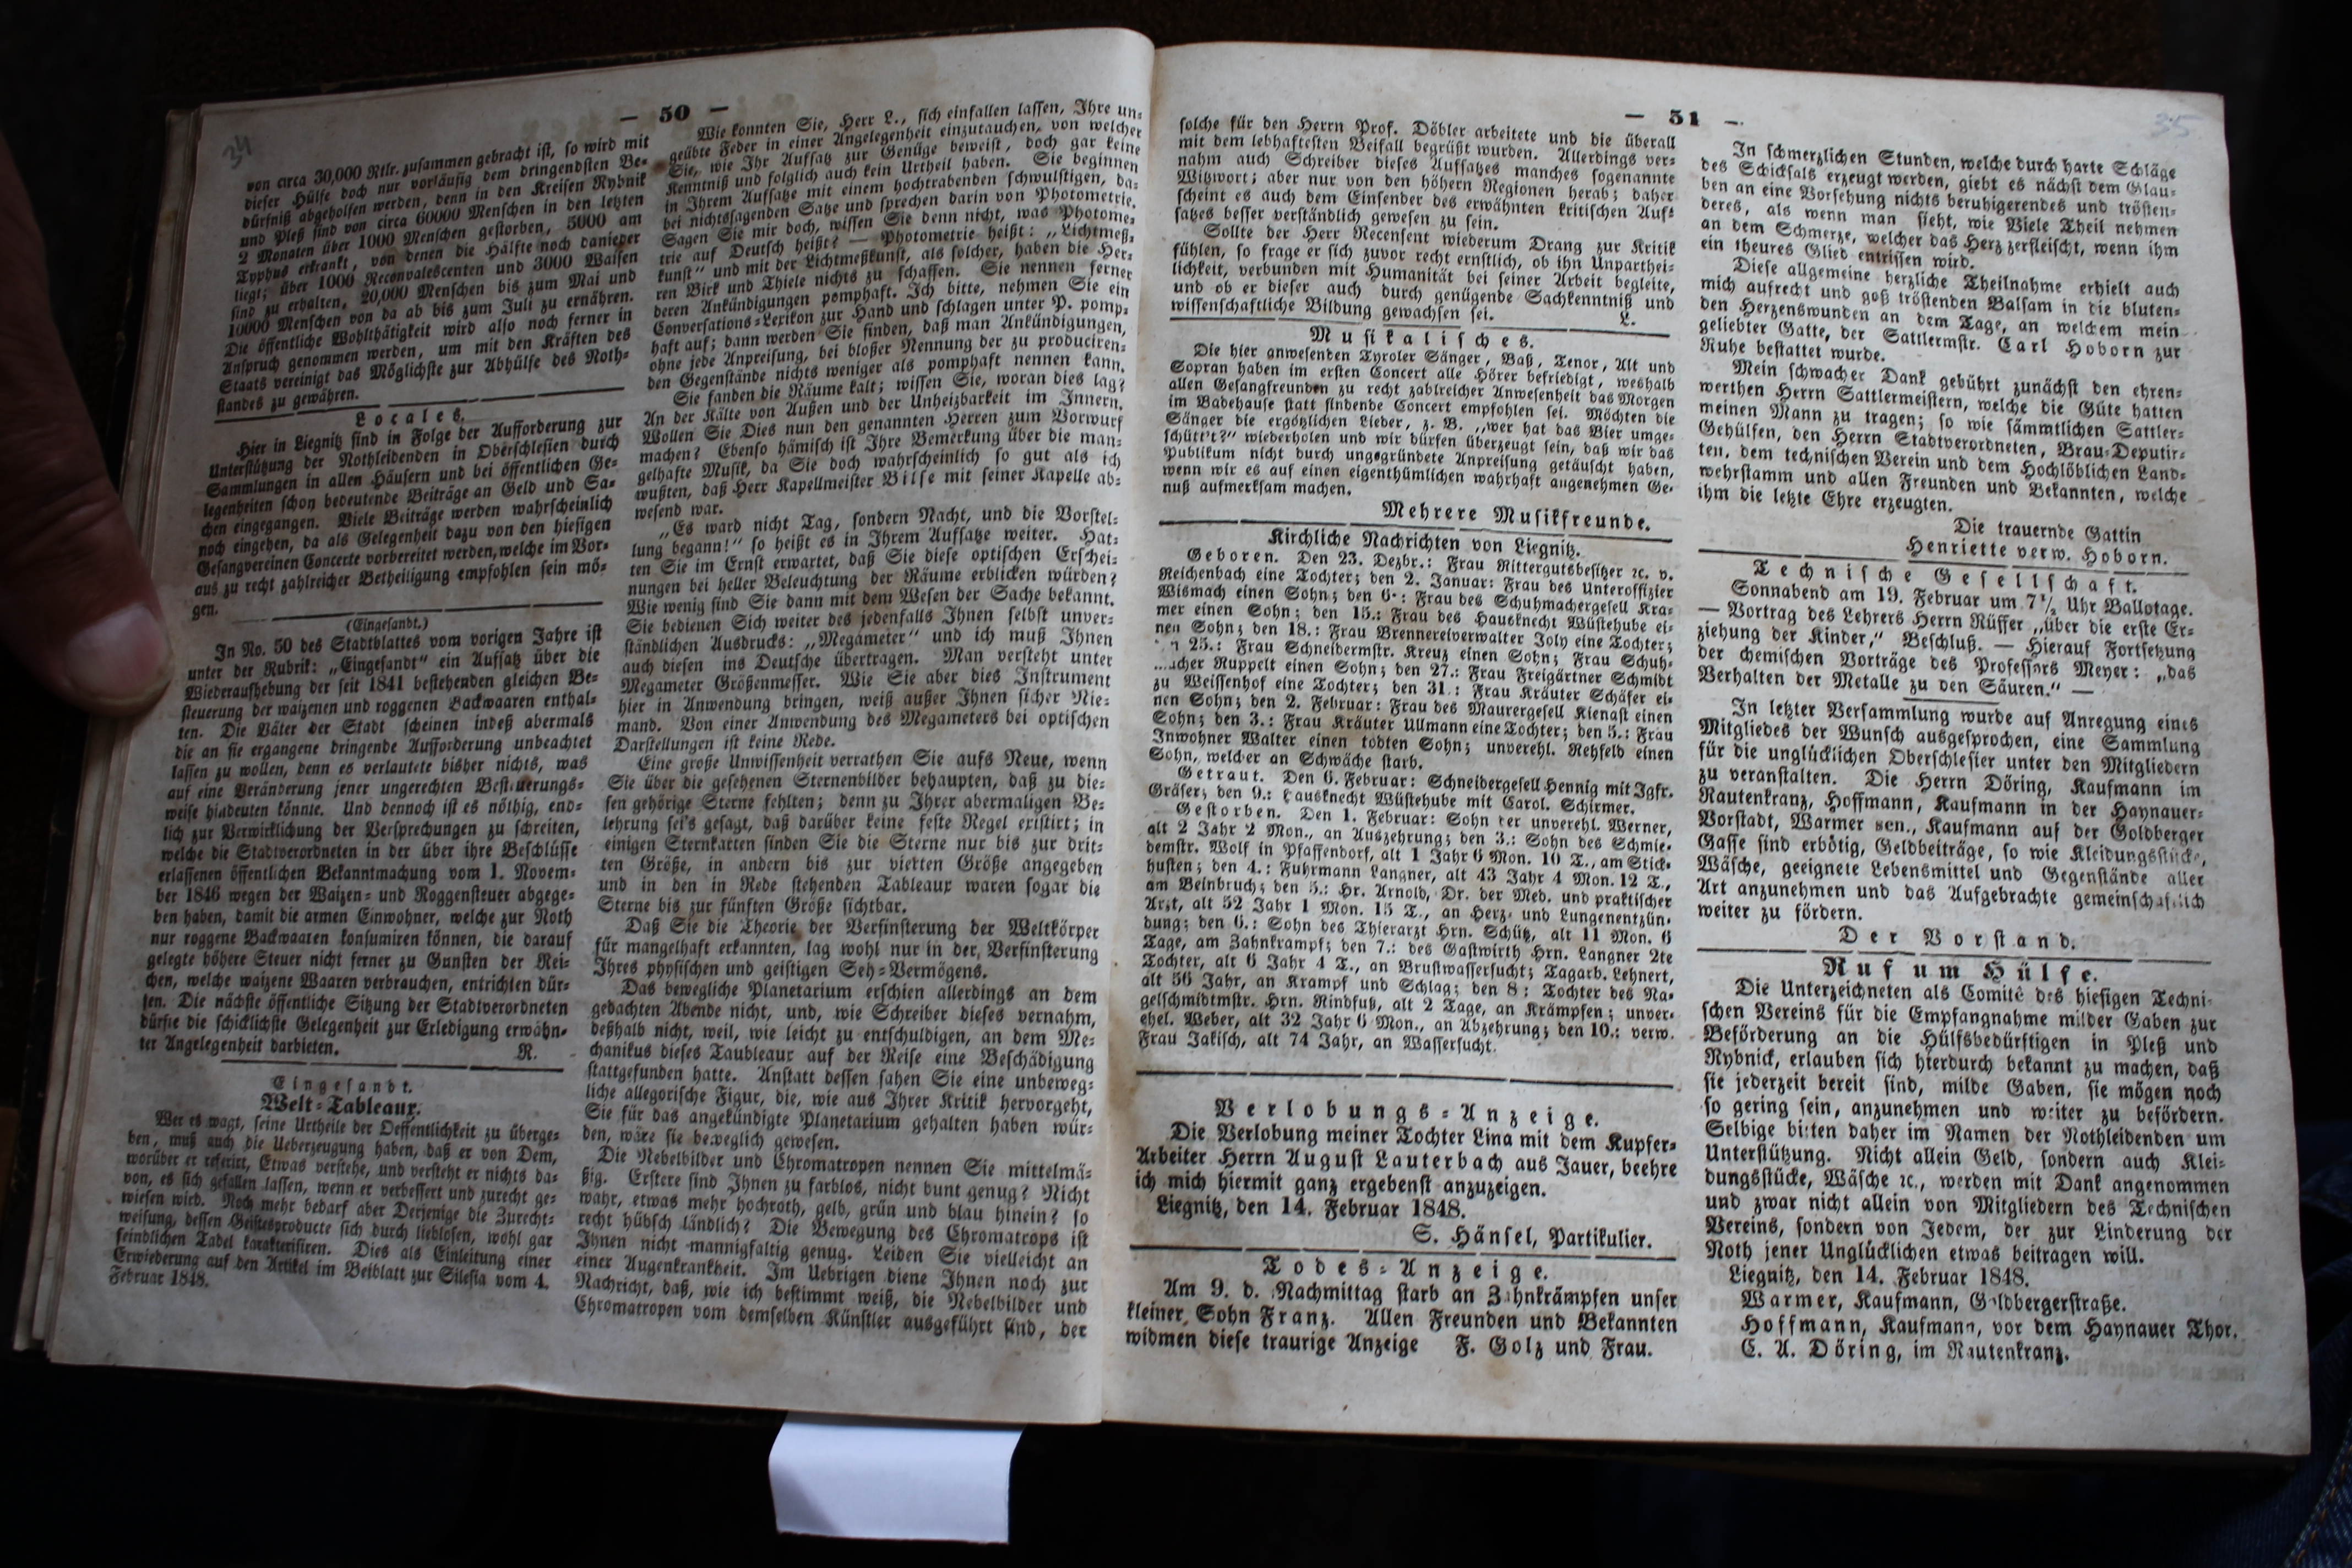 34
— 50 —
von circa 30,000 Rtlr. zusammen gebracht ist, so wird mit
dieser Hülfe doch nur vorläufig dem dringendsten Be-
dürfniß abgeholfen werden, denn in den Kreisen Rybnik
und Pleß sind von circa 60000 Menschen in den letzten
2 Monaten über 1000 Menschen gestorben, 5000 am
Typhus erkrankt, von denen die Hälfte noch danieder
liegt; über 1000 Reconvalescenten und 3000 Waisen
sind zu erhalten, 20,000 Menschen bis zum Mai und
10000 Menschen von da ab bis zum Juli zu ernähren.
Die öffentliche Wohlthätigkeit wird also noch ferner in
Anspruch genommen werden, um mit den Kräften des
Staats vereinigt das Möglichste zur Abhülfe des Noth-
standes zu gewähren.
Locales.
Hier in Liegnitz sind in Folge der Aufforderung zur
Unterstützung der Nothleidenden in Oberschlesien durch
Sammlungen in allen Häusern und bei öffentlichen Ge-
legenheiten schon bedeutende Beiträge an Geld und Sa-
chen eingegangen. Viele Beiträge werden wahrscheinlich
noch eingehen, da als Gelegenheit dazu von den hiesigen
Gesangvereinen Concerte vorbereitet werden, welche im Vor-
aus zu recht zahlreicher Betheiligung empfohlen sein mö-
gen.
(Eingesandt.)
In No. 50 des Stadtblattes vom vorigen Jahre ist
unter der Rubrik: „Eingesandt" ein Aufsatz über die
Wiederaufhebung der seit 1841 bestehenden gleichen Be-
steuerung der waizenen und roggenen Backwaaren enthal-
ten. Die Väter der Stadt scheinen indeß abermals
die an sie ergangene dringende Aufforderung unbeachtet
lassen zu wollen, denn es verlautete bisher nichts, was
auf eine Veränderung jener ungerechten Besteuerungs-
weise hindeuten könnte. Und dennoch ist es nöthig, end-
lich zur Verwirklichung der Versprechungen zu schreiten,
welche die Stadtverordneten in der über ihre Beschlüsse
erlassenen öffentlichen Bekanntmachung vom 1. Novem-
ber 1846 wegen der Waizen- und Roggensteuer abgege-
ben haben, damit die armen Einwohner, welche zur Noth
nur roggene Backwaaren konsumiren können, die darauf
gelegte höhere Steuer nicht ferner zu Gunsten der Rei-
chen, welche waizene Waaren verbrauchen, entrichten dür-
fen. Die nächste öffentliche Sitzung der Stadtverordneten
dürfte die schicklichste Gelegenheit zur Erledigung erwähn-
ter Angelegenheit darbieten. R.
Eingesandt.
Welt-Tableaux.
Wer es wagt, seine Urtheile der Oeffentlichkeit zu überge-
ben, muß auch die Ueberzeugung haben, daß er von Dem,
worüber er referirt, Etwas verstehe, und versteht er nichts da-
von, es sich gefallen lassen, wenn er verbessert und zurecht ge-
wiesen wird. Noch mehr bedarf aber Derjenige die Zurecht-
weisung, dessen Geistesproducte sich durch lieblosen, wohl gar
feindlichen Tadel karakterisiren. Dies als Einleitung einer
Erwiederung auf den Artikel im Beiblatt zur Silesia vom 4.
Februar 1848.
Wie konnten Sie, Herr L., sich einfallen lassen, Ihre un-
geübte Feder in einer Angelegenheit einzutauchen, von welcher
Sie, wie Ihr Aufsatz zur Genüge beweist, doch gar keine
Kenntniß und folglich auch kein Urtheil haben. Sie beginnen
in Ihrem Aufsatze mit einem hochtrabenden schwulstigen, da-
bei nichtssagenden Satze und sprechen darin von Photometrie.
Sagen Sie mir doch, wissen Sie denn nicht, was Photome-
trie auf Deutsch heißt? — Photometrie heißt: „Lichtmeß-
kunst" und mit der Lichtmeßkunst, als solcher, haben die Her-
ren Birk und Thiele nichts zu schaffen. Sie nennen ferner
deren Ankündigungen pomphaft. Ich bitte, nehmen Sie ein
Conversations-Lexikon zur Hand und schlagen unter P. pomp-
haft auf; dann werden Sie finden, daß man Ankündigungen,
ohne jede Anpreisung, bei bloßer Nennung der zu produciren-
den Gegenstände nichts weniger als pomphaft nennen kann.
Sie fanden die Räume kalt; wissen Sie, woran dies lag?
An der Kälte von Außen und der Unheizbarkeit im Innern.
Wollen Sie Dies nun den genannten Herren zum Vorwurf
machen? Ebenso hämisch ist Ihre Bemerkung über die man-
gelhafte Musik, da Sie doch wahrscheinlich so gut als ich
wußten, daß Herr Kapellmeister Bilse mit seiner Kapelle ab-
wesend war.
„Es ward nicht Tag, sondern Nacht, und die Vorstel-
lung begann!" so heißt es in Ihrem Aufsatze weiter. Hat-
ten Sie im Ernst erwartet, daß Sie diese optischen Erschei-
nungen bei heller Beleuchtung der Räume erblicken würden?
Wie wenig sind Sie dann mit dem Wesen der Sache bekannt.
Sie bedienen Sich weiter des jedenfalls Ihnen selbst unver-
ständlichen Ausdrucks: „Megameter" und ich muß Ihnen
auch diesen ins Deutsche übertragen. Man versteht unter
Megameter Größenmesser. Wie Sie aber dies Instrument
hier in Anwendung bringen, weiß außer Ihnen sicher Nie-
mand. Von einer Anwendung des Megameters bei optischen
Darstellungen ist keine Rede.
Eine große Unwissenheit verrathen Sie aufs Neue, wenn
Sie über die gesehenen Sternenbilder behaupten, daß zu die-
sen gehörige Sterne fehlten; denn zu Ihrer abermaligen Be-
lehrung sei's gesagt, daß darüber keine feste Regel existirt; in
einigen Sternkarten finden Sie die Sterne nur bis zur drit-
ten Größe, in andern bis zur vierten Größe angegeben
und in den in Rede stehenden Tableaux waren sogar die
Sterne bis zur fünften Größe sichtbar.
Daß Sie die Theorie der Verfinsterung der Weltkörper
für mangelhaft erkannten, lag wohl nur in der Verfinsterung
Ihres physischen und geistigen Seh-Vermögens.
Das bewegliche Planetarium erschien allerdings an dem
gedachten Abende nicht, und, wie Schreiber dieses vernahm,
deßhalb nicht, weil, wie leicht zu entschuldigen, an dem Me-
chanikus dieses Taubleaux auf der Reise eine Beschädigung
stattgefunden hatte. Anstatt dessen sahen Sie eine unbeweg-
liche allegorische Figur, die, wie aus Ihrer Kritik hervorgeht,
Sie für das angekündigte Planetarium gehalten haben wür-
den, wäre sie beweglich gewesen.
Die Nebelbilder und Chromatropen nennen Sie mittelmä-
ßig. Erstere sind Ihnen zu farblos, nicht bunt genug? Nicht
wahr, etwas mehr hochroth, gelb, grün und blau hinein? so
recht hübsch ländlich? Die Bewegung des Chromatrops ist
Ihnen nicht mannigfaltig genug. Leiden Sie vielleicht an
einer Augenkrankheit. Im Uebrigen diene Ihnen noch zur
Nachricht, daß, wie ich bestimmt weiß, die Nebelbilder und
Chromatropen vom demselben Künstler ausgeführt sind, der
— 51 —
35
solche für den Herrn Prof. Döbler arbeitete und die überall
mit dem lebhaftesten Beifall begrüßt wurden. Allerdings ver-
nahm auch Schreiber dieses Aufsatzes manches sogenannte
Witzwort; aber nur von den höhern Regionen herab; daher
scheint es auch dem Einsender des erwähnten kritischen Auf-
satzes besser verständlich gewesen zu sein.
Sollte der Herr Recensent wiederum Drang zur Kritik
fühlen, so frage er sich zuvor recht ernstlich, ob ihn Unparthei-
lichkeit, verbunden mit Humanität bei seiner Arbeit begleite,
und ob er dieser auch durch genügende Sachkenntniß und
wissenschaftliche Bildung gewachsen sei. L.
Musikalisches.
Die hier anwesenden Tyroler Sänger, Baß, Tenor, Alt und
Sopran haben im ersten Concert alle Hörer befriedigt, weshalb
allen Gesangfreunden zu recht zahlreicher Anwesenheit das Morgen
im Badehause statt findende Concert empfohlen sei. Möchten die
Sänger die ergötzlichen Lieder, z. B. „wer hat das Bier umge-
schütt't?" wiederholen und wir dürfen überzeugt sein, daß wir das
Publikum nicht durch ungegründete Anpreisung getäuscht haben,
wenn wir es auf einen eigenthümlichen wahrhaft angenehmen Ge-
nuß aufmerksam machen.
Mehrere Musikfreunde.
Kirchliche Nachrichten von Liegnitz.
Geboren. Den 23. Dezbr.: Frau Rittergutsbesitzer ꝛc. v.
Reichenbach eine Tochter; den 2. Januar: Frau des Unteroffizier
Wismach einen Sohn; den 6.: Frau des Schuhmachergesell Kra-
mer einen Sohn; den 15.: Frau des Hausknecht Wüstehube ei-
nen Sohn; den 18.: Frau Brennereiverwalter Joly eine Tochter;
n 25.: Frau Schneidermstr. Kreuz einen Sohn; Frau Schuh-
acher Ruppelt einen Sohn; den 27.: Frau Freigärtner Schmidt
zu Weissenhof eine Tochter; den 31.: Frau Kräuter Schäfer ei-
nen Sohn; den 2. Februar: Frau des Maurergesell Kienast einen
Sohn; den 3.: Frau Kräuter Ullmann eine Tochter; den 5.: Frau
Inwohner Walter einen todten Sohn; unverehl. Rehfeld einen
Sohn, welcher an Schwäche starb.
Getraut. Den 6. Februar: Schneidergesell Hennig mit Igfr.
Gräser; den 9.: Hausknecht Wüstehube mit Carol. Schirmer.
Gestorben. Den 1. Februar: Sohn der unverehl. Werner,
alt 2 Jahr 2 Mon., an Auszehrung; den 3.: Sohn des Schmie-
demstr. Wolf in Pfaffendorf, alt 1 Jahr 6 Mon. 10 T., am Stick-
husten; den 4.: Fuhrmann Langner, alt 43 Jahr 4 Mon. 12 T.,
am Beinbruch; den 5.: Hr. Arnold, Dr. der Med. und praktischer
Arzt, alt 52 Jahr 1 Mon. 15 T., an Herz- und Lungenentzün-
dung; den 6.: Sohn des Thierarzt Hrn. Schütz, alt 11 Mon. 6
Tage, am Zahnkrampf; den 7.: des Gastwirth Hrn. Langner 2te
Tochter, alt 6 Jahr 4 T., an Brustwassersucht; Tagarb. Lehnert,
alt 56 Jahr, an Krampf und Schlag; den 8: Tochter des Na-
gelschmidtmstr. Hrn. Rindfuß, alt 2 Tage, an Krämpfen; unver-
ehel. Weber, alt 32 Jahr 6 Mon., an Abzehrung; den 10.: verw.
Frau Jakisch, alt 74 Jahr, an Wassersucht.
Verlobungs-Anzeige.
Die Verlobung meiner Tochter Lina mit dem Kupfer-
Arbeiter Herrn August Lauterbach aus Jauer, beehre
ich mich hiermit ganz ergebenst anzuzeigen.
Liegnitz, den 14. Februar 1848.
S. Hänsel, Partikulier.
Todes-Anzeige.
Am 9. d. Nachmittag starb an Zahnkrämpfen unser
kleiner Sohn Franz. Allen Freunden und Bekannten
widmen diese traurige Anzeige F. Golz und Frau.
In schmerzlichen Stunden, welche durch harte Schläge
des Schicksals erzeugt werden, giebt es nächst dem Glau-
ben an eine Vorsehung nichts beruhigerendes und trösten-
deres, als wenn man sieht, wie Viele Theil nehmen
an dem Schmerze, welcher das Herz zerfleischt, wenn ihm
ein theures Glied entrissen wird.
Diese allgemeine herzliche Theilnahme erhielt auch
mich aufrecht und goß tröstenden Balsam in die bluten-
den Herzenswunden an dem Tage, an welchem mein
geliebter Gatte, der Sattlermstr. Carl Hoborn zur
Ruhe bestattet wurde.
Mein schwacher Dank gebührt zunächst den ehren-
werthen Herrn Sattlermeistern, welche die Güte hatten
meinen Mann zu tragen; so wie sämmtlichen Sattler-
Gehülfen, den Herrn Stadtverordneten, Brau-Deputir-
ten, dem technischen Verein und dem Hochlöblichen Land-
wehrstamm und allen Freunden und Bekannten, welche
ihm die letzte Ehre erzeugten.
Die trauernde Gattin
Henriette verw. Hoborn.
Technische Gesellschaft.
Sonnabend am 19. Februar um 7½ Uhr Ballotage.
— Vortrag des Lehrers Herrn Rüffer „über die erste Er-
ziehung der Kinder," Beschluß. — Hierauf Fortsetzung
der chemischen Vorträge des Professors Meyer: „das
Verhalten der Metalle zu den Säuren." —
In letzter Versammlung wurde auf Anregung eines
Mitgliedes der Wunsch ausgesprochen, eine Sammlung
für die unglücklichen Oberschlesier unter den Mitgliedern
zu veranstalten. Die Herrn Döring, Kaufmann im
Rautenkranz, Hoffmann, Kaufmann in der Haynauer-
Vorstadt, Warmer sen., Kaufmann auf der Goldberger
Gasse sind erbötig, Geldbeiträge, so wie Kleidungsstücke,
Wäsche, geeignete Lebensmittel und Gegenstände aller
Art anzunehmen und das Aufgebrachte gemeinschaftlich
weiter zu fördern.
Der Vorstand.
Ruf um Hülfe.
Die Unterzeichneten als Comité des hiesigen Techni-
schen Vereins für die Empfangnahme milder Gaben zur
Beförderung an die Hülfsbedürftigen in Pleß und
Rybnick, erlauben sich hierdurch bekannt zu machen, daß
sie jederzeit bereit sind, milde Gaben, sie mögen noch
so gering sein, anzunehmen und weiter zu befördern.
Selbige bitten daher im Namen der Nothleidenden um
Unterstützung. Nicht allein Geld, sondern auch Klei-
dungsstücke, Wäsche ꝛc., werden mit Dank angenommen
und zwar nicht allein von Mitgliedern des Technischen
Vereins, sondern von Jedem, der zur Linderung der
Noth jener Unglücklichen etwas beitragen will.
Liegnitz, den 14. Februar 1848.
Warmer, Kaufmann, Goldbergerstraße.
Hoffmann, Kaufmann, vor dem Haynauer Thor.
C. A. Döring, im Rautenkranz.